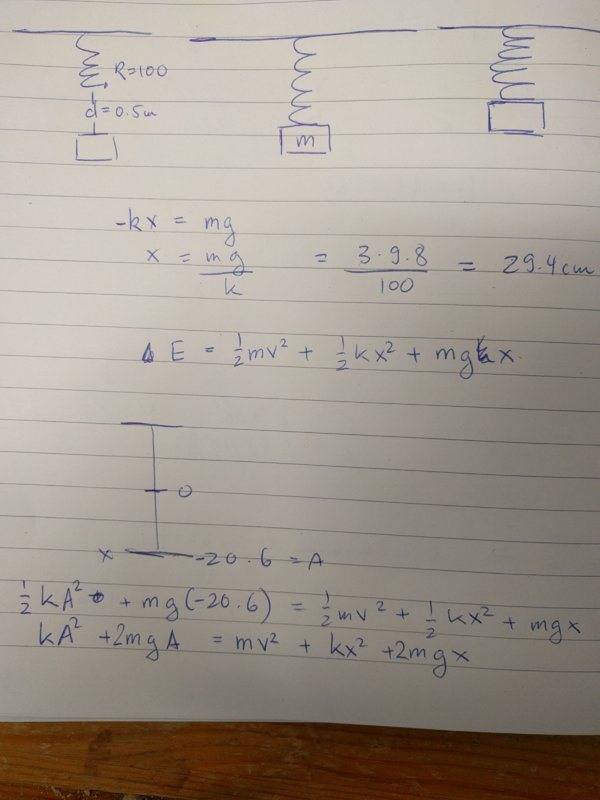 R=100
d=0.5m
m
-kx = mg
x = mg/k = 3·9.8/100 = 29.4cm
E = ½mv² + ½kx² + mgx.
0
x -20.6 = A
½kA² + mg(-20.6) = ½mv² + ½kx² + mgx
kA² + 2mgA = mv² + kx² + 2mgx